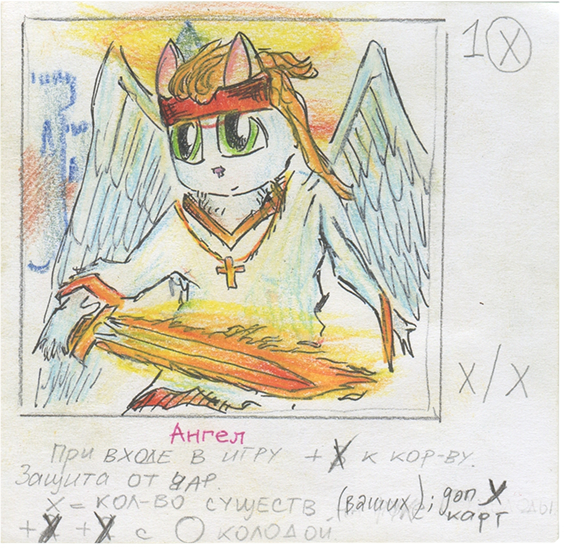 1 X
X/X
Ангел
При входе в игру + X к кор-ву.
Защита от чар.
X = кол-во существ (ваших); доп. X
карт
+X +X с колодой.